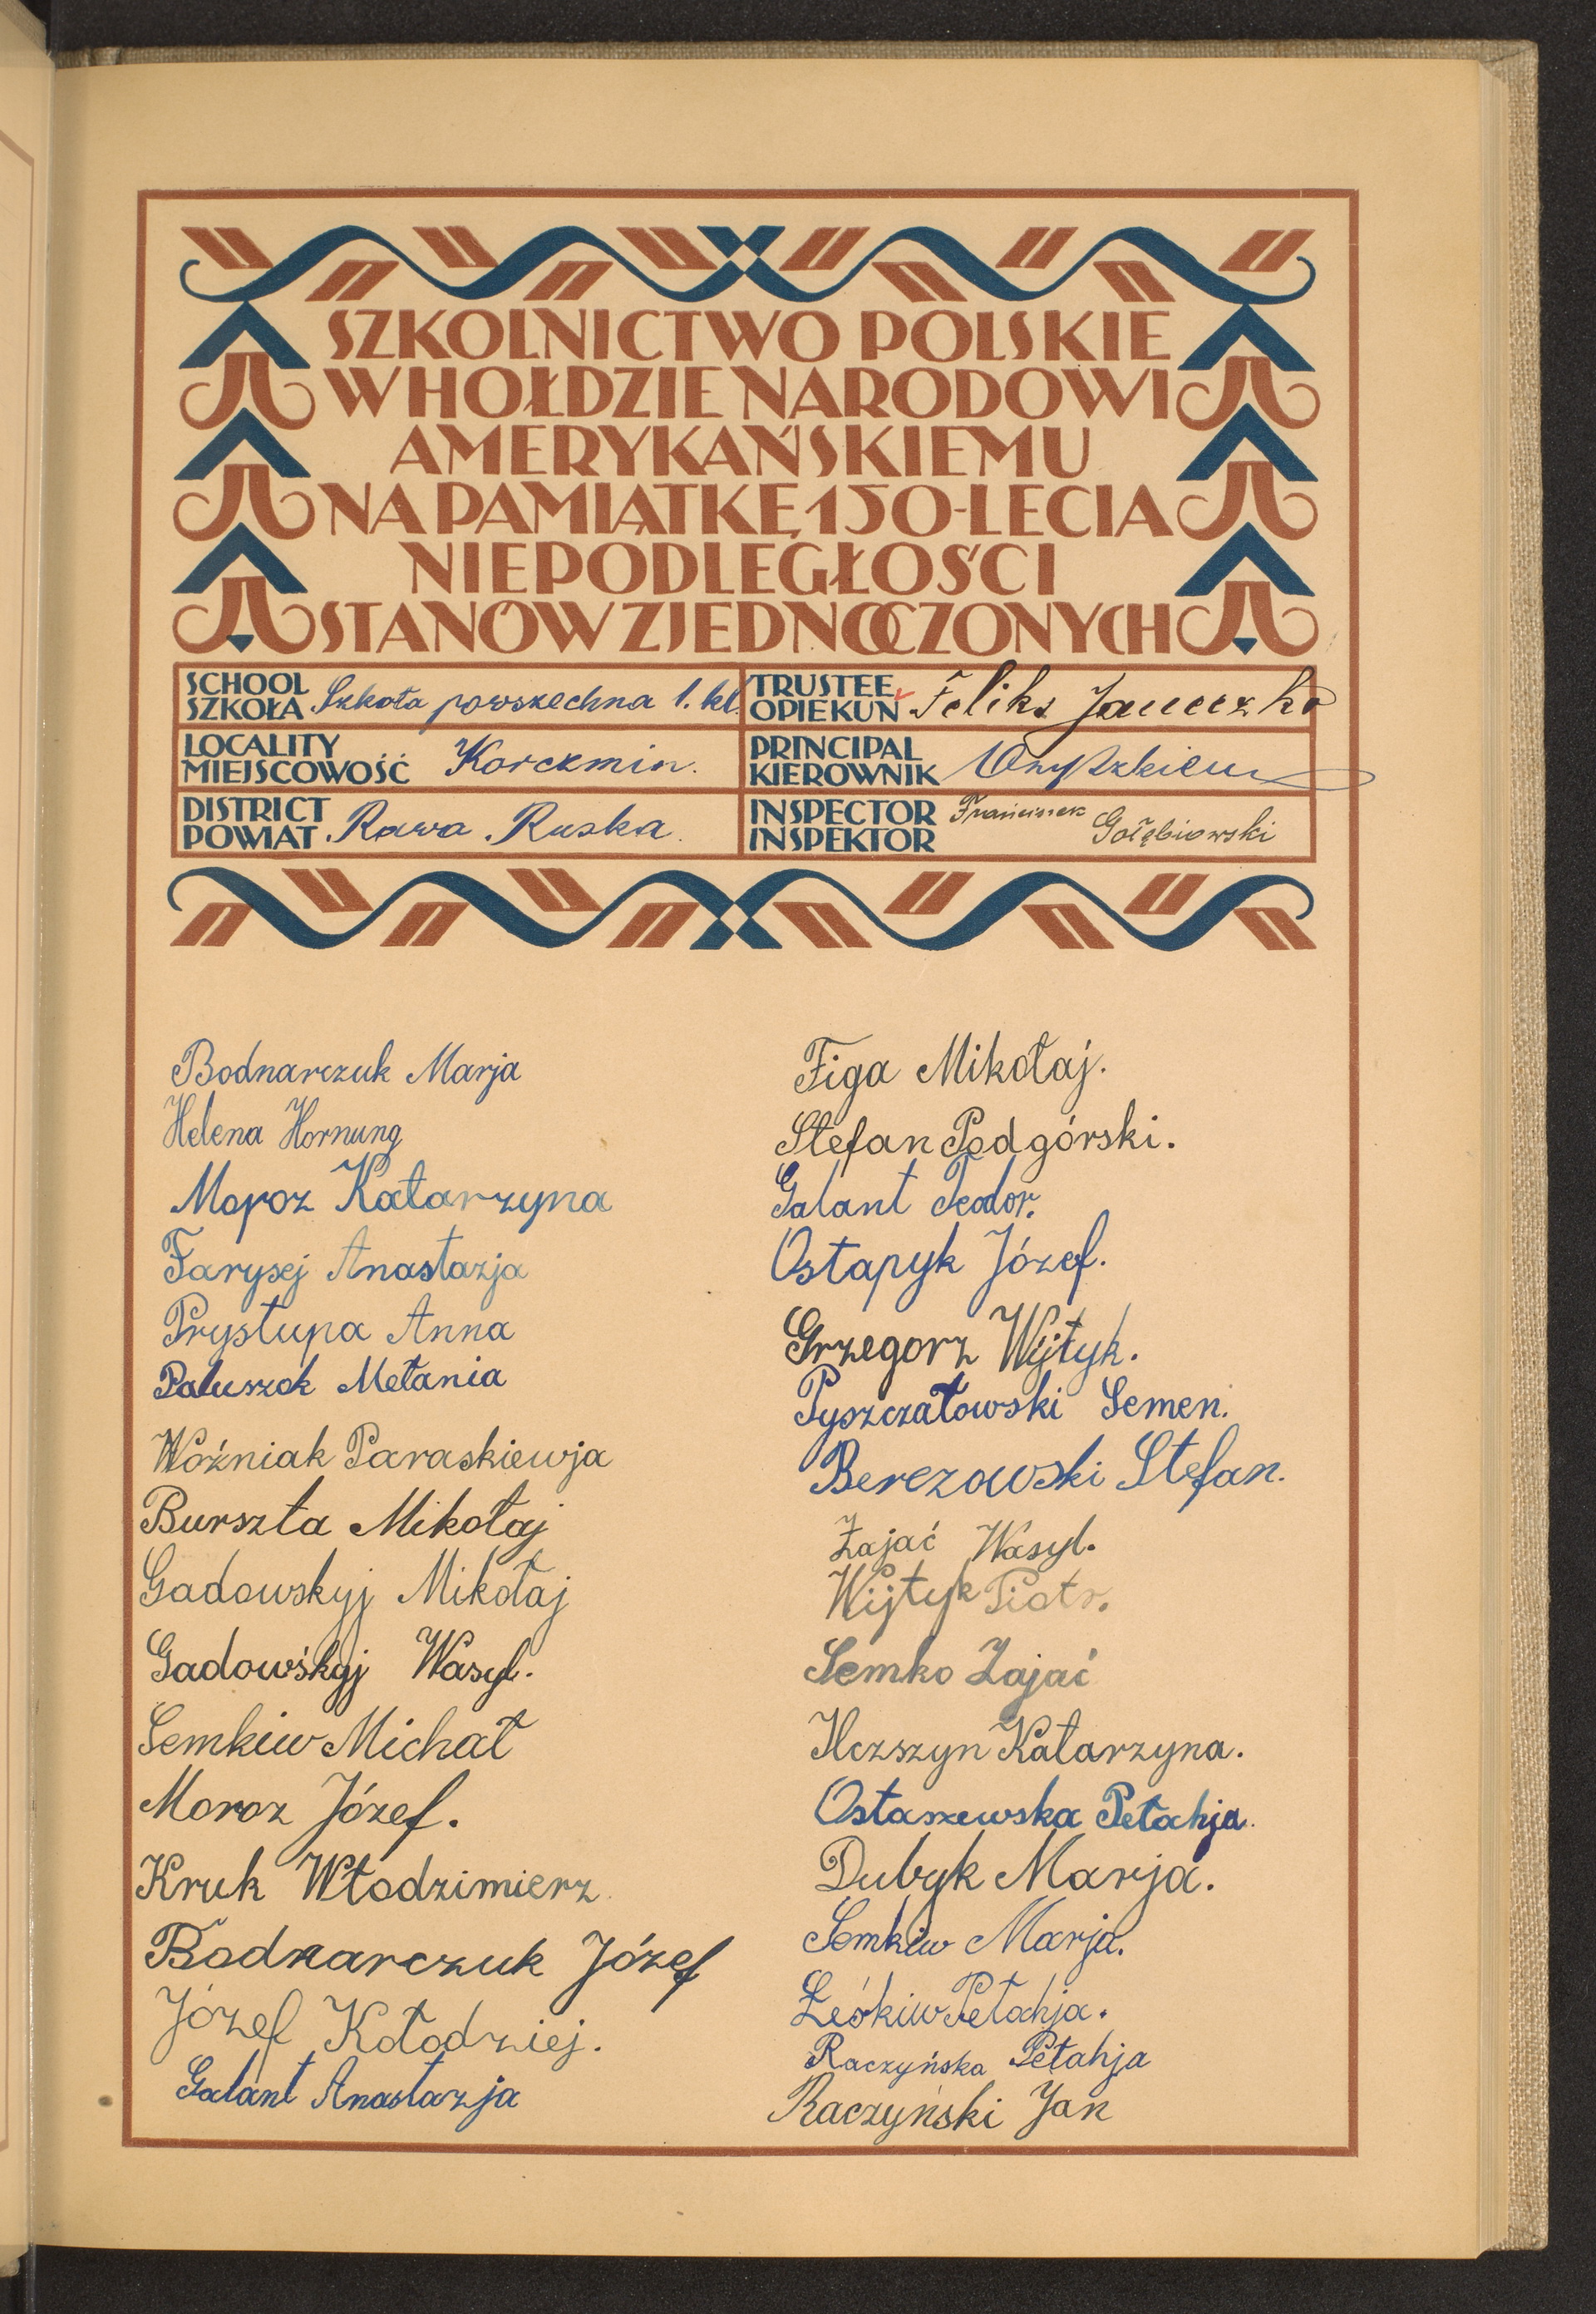 SZKOLNICTWO POLSKIE
W HOŁDZIE NARODOWI
AMERYKAŃSKIEMU
NA PAMIĄTKĘ 150-LECIA
NIEPODLEGŁOŚCI
STANÓW ZJEDNOCZONYCH
SCHOOL
SZKOŁA Szkoła powszechna 1. kl.
TRUSTEE
OPIEKUN Feliks Janeczko
LOCALITY
MIEJSCOWOŚĆ Korczmin.
PRINCIPAL
KIEROWNIK
DISTRICT
POWIAT Rawa Ruska.
INSPECTOR
INSPEKTOR Franciszek Gołębiowski
Bodnarczuk Marja
Helena Hornung
Moroz Katarzyna
Farysej Anastazja
Prystupa Anna
Paluszok Mełania
Woźniak Paraskiewja
Burszta Mikołaj
Gadowskyj Mikołaj
Gadowśkyj Wasyl.
Semkiw Michał
Moroz Józef.
Kruk Włodzimierz.
Bodnarczuk Józef
Józef Kołodziej.
Galant Anastazja
Figa Mikołaj.
Stefan Podgórski.
Galant Teodor.
Ostapyk Józef.
Grzegorz Wijtyk.
Pyszczałowski Semen.
Berezowski Stefan.
Zajać Wasyl.
Wijtyk Piotr.
Semko Zajać
Ilczszyn Katarzyna.
Ostaszewska Pełahja.
Dubyk Marja.
Semkiw Marja.
Łeśkiw Pełahja.
Raczyńska Pełahja
Raczyński Jan